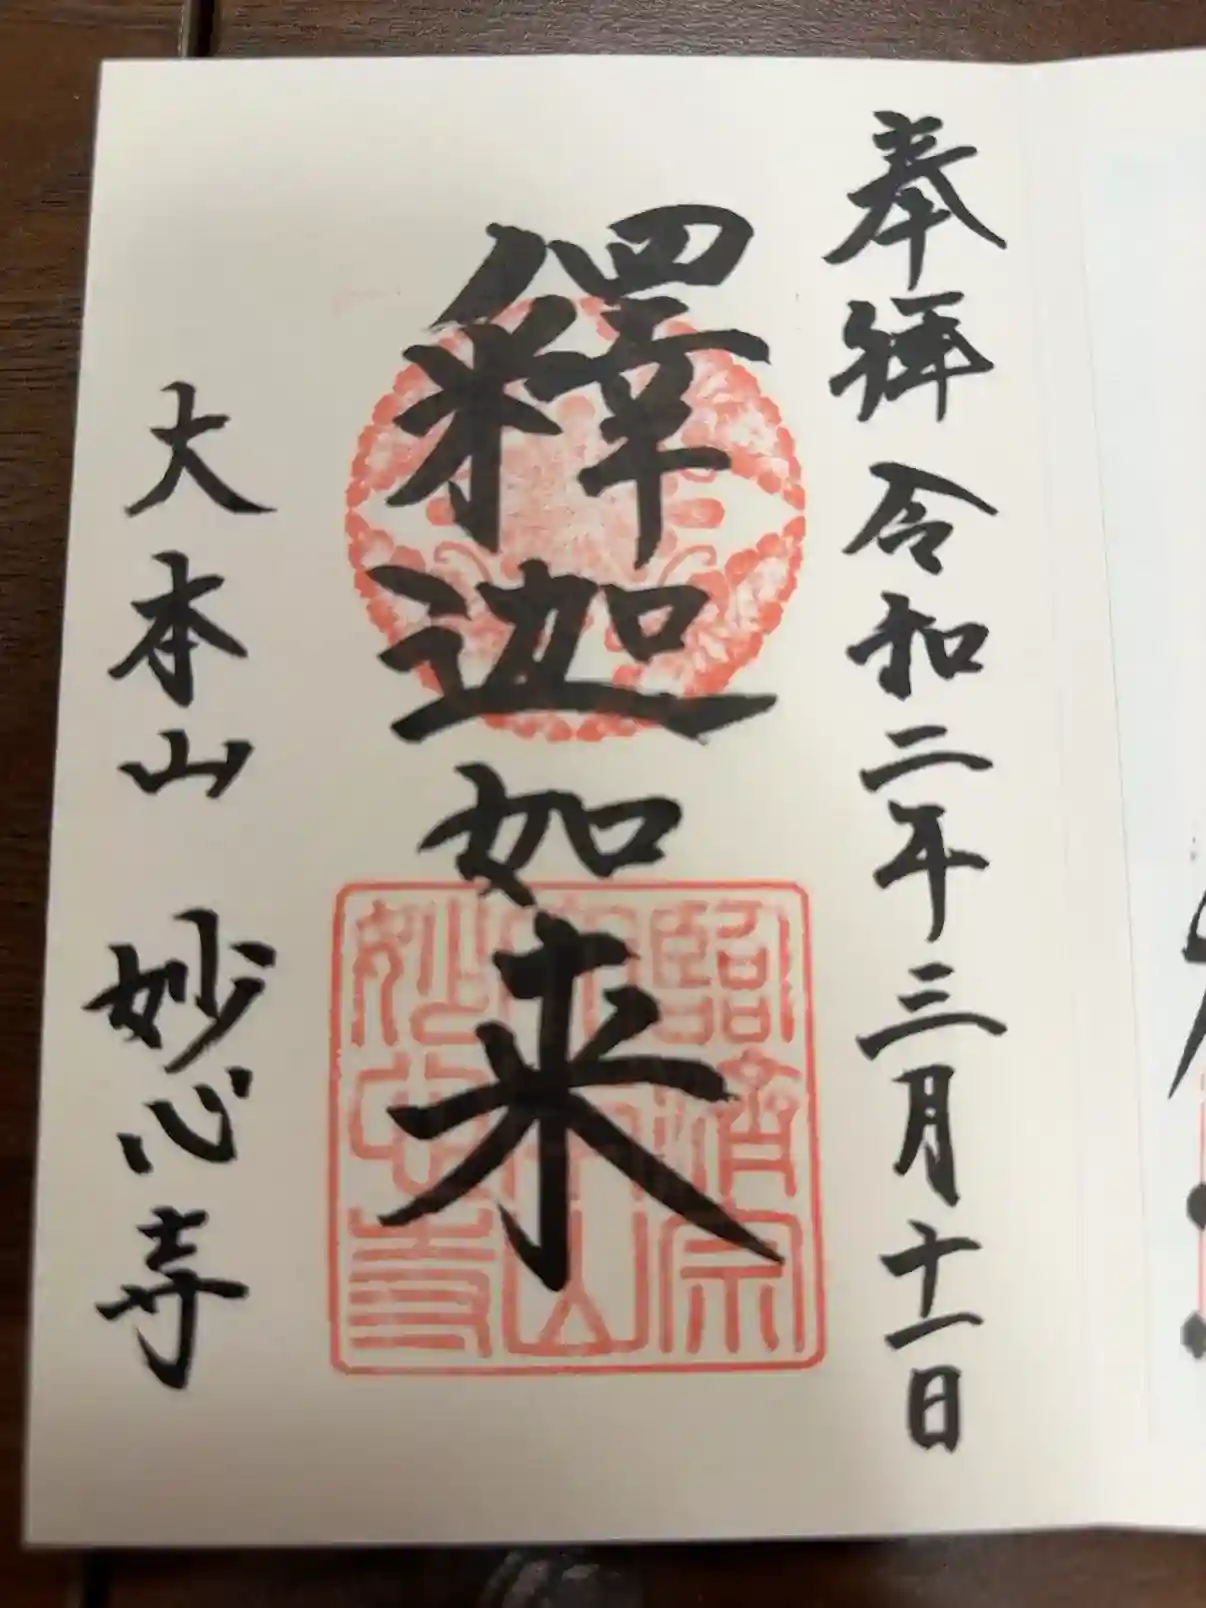 奉拝 令和二年三月十一日
釋迦如来
大本山 妙心寺
臨済宗
山
妙心寺